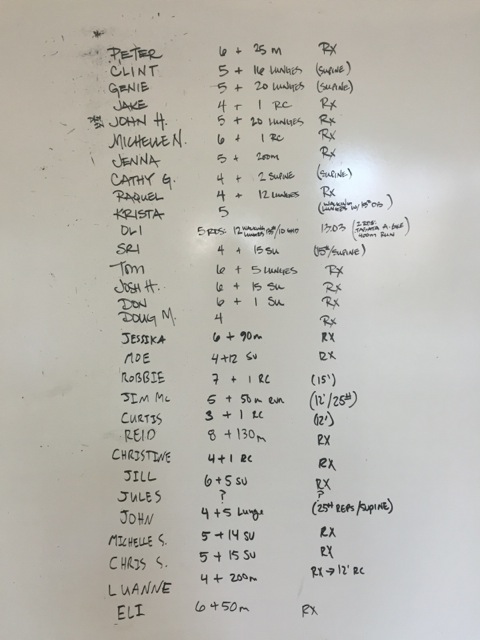 PETER 6 + 25 m RX
CLINT 5 + 16 LUNGES (SUPINE)
GENIE 5 + 20 LUNGES (SUPINE)
JAKE 4 + 1 RC RX
JOHN H. 5 + 20 LUNGES RX
MICHELLE N. 6 + 1 RC RX
JENNA 5 + 200m RX
CATHY G. 4 + 2 SUPINE (SUPINE)
RAQUEL 4 + 12 LUNGES RX
KRISTA 5 (WALKING LUNGES W/ 15# DB)
OLI 5 RDS: 12 WALKING LUNGES 13:03
SRI 4 + 15 SU (15#/SUPINE)
TOM 6 + 5 LUNGES RX
JOSH H. 6 + 15 SU RX
DON 6 + 1 SU RX
DOUG M. 4 RX
JESSIKA 6 + 90m RX
MOE 4+12 SU RX
ROBBIE 7 + 1 RC (15')
JIM MC 5 + 50m RUN (12'/25#)
CURTIS 3 + 1 RC (12')
REID 8 + 130m RX
CHRISTINE 4+1 RC RX
JILL 6+5 SU RX
JULES ? ?
JOHN 4+5 Lunge (25# REPS/SUPINE)
MICHELLE S. 5 + 14 SU RX
CHRIS S. 5 + 15 SU RX
LUANNE 4 + 200m RX → 12' RC
ELI 6+50m RX